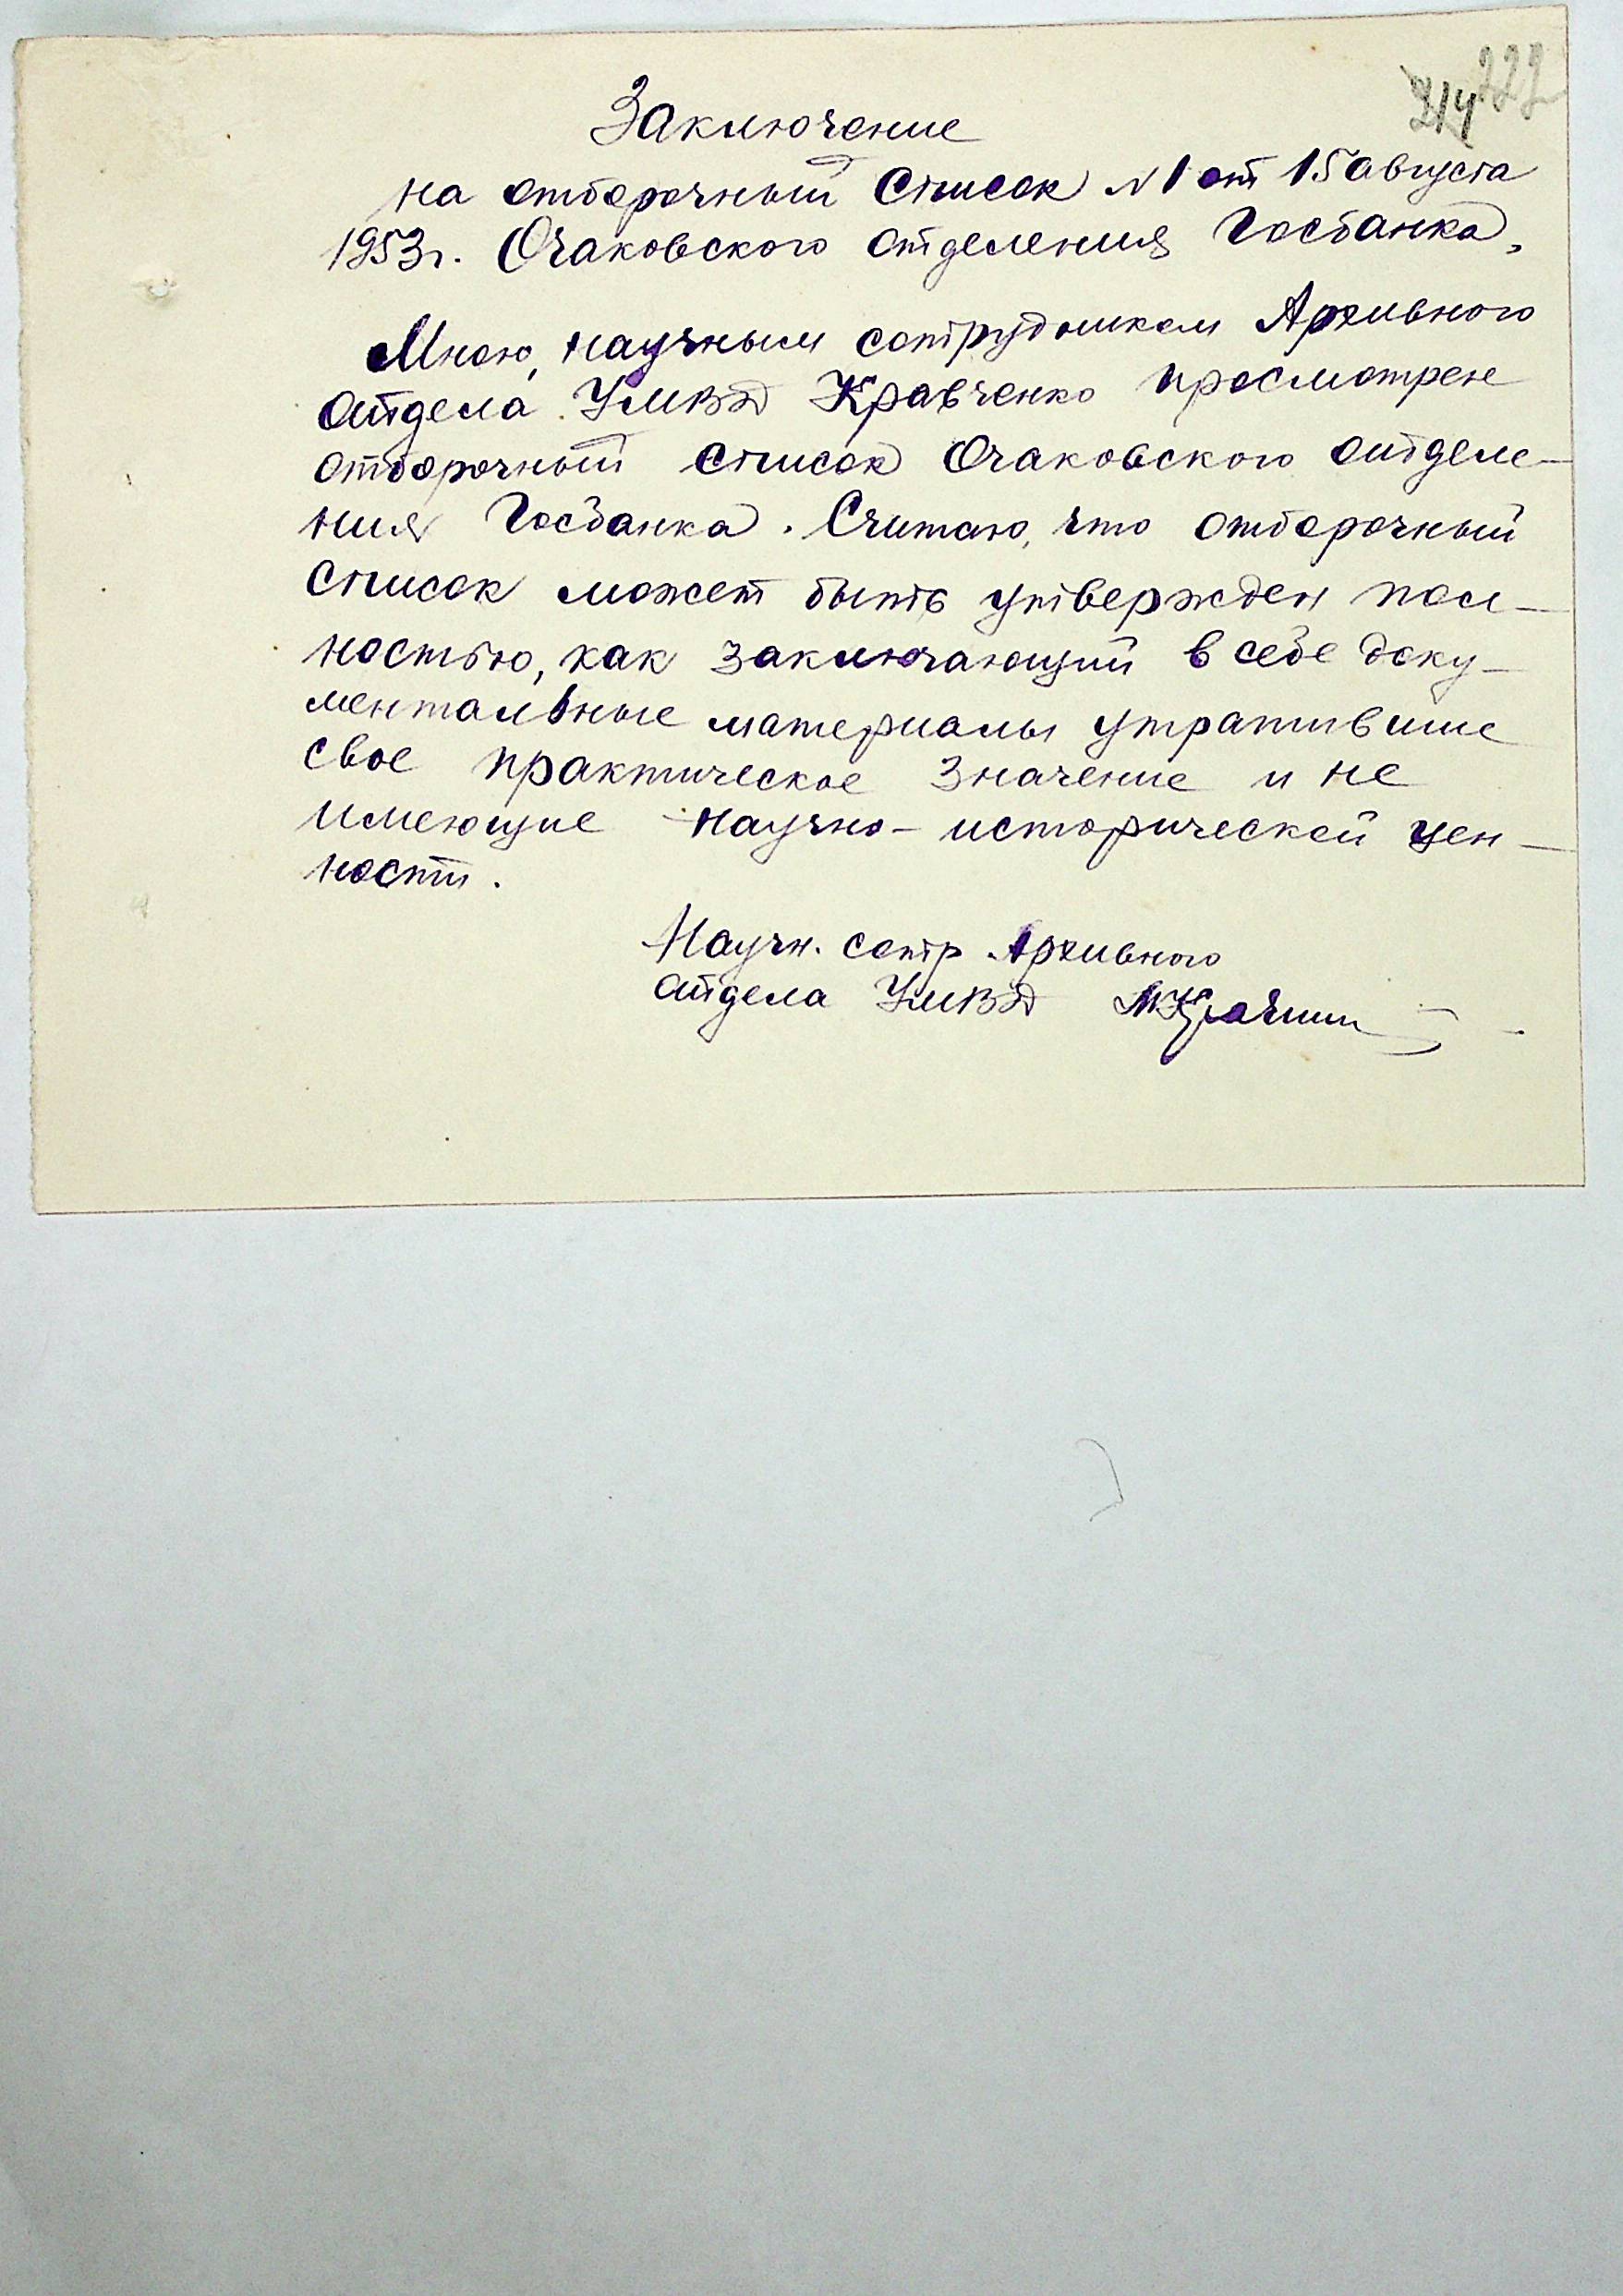 222
214
Заключение
на отборочный список N 1 от 15 августа
1953г. Очаковского отделения Госбанка,
Мною, научным сотрудником Архивного
отдела УМВД Кравченко просмотрен
отборочный список Очаковского отделе-
ния Госбанка. Считаю, что отборочный
список может быть утвержден пол-
ностью, как заключающий в себе доку-
ментальные материалы утратившие
свое практическое значение и не
имеющие научно-исторической цен-
ности.
Научн. сотр. Архивного
отдела УМВД